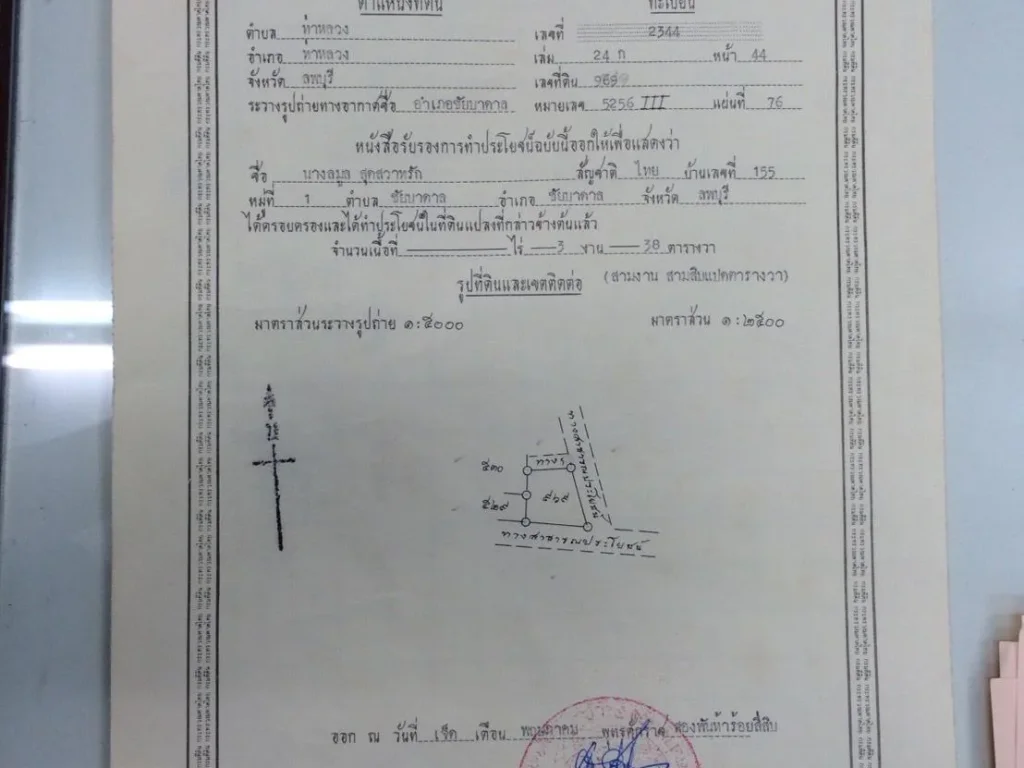 ตำแหน่งที่ดิน ทะเบียน
ตำบล ท่าหลวง เลขที่ 2344
อำเภอ ท่าหลวง เล่ม 24 ก หน้า 44
จังหวัด ลพบุรี เลขที่ดิน
ระวางรูปถ่ายทางอากาศชื่อ อำเภอชัยบาดาล หมายเลข 5256 III แผ่นที่ 76
หนังสือรับรองการทำประโยชน์ฉบับนี้ออกให้เพื่อแสดงว่า
ชื่อ นางลมูล สุดสวาทรัก สัญชาติ ไทย บ้านเลขที่ 155
หมู่ที่ 1 ตำบล ชัยบาดาล อำเภอ ชัยบาดาล จังหวัด ลพบุรี
ได้ครอบครองและได้ทำประโยชน์ในที่ดินแปลงที่กล่าวข้างต้นแล้ว
จำนวนเนื้อที่ ไร่ 3 งาน 38 ตารางวา
(สามงาน สามสิบแปดตารางวา)
รูปที่ดินและเขตติดต่อ
มาตราส่วนระวางรูปถ่าย ๑:๕๐๐๐ มาตราส่วน ๑:๒๕๐๐
ทางสาธารณประโยชน์
ทางฯ
ทางสาธารณประโยชน์
ออก ณ วันที่ เจ็ด เดือน พฤษภาคม พุทธศักราช สองพันห้าร้อยสี่สิบ